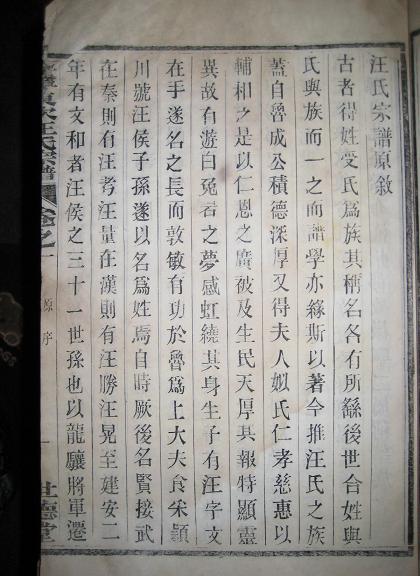 汪氏宗譜原敘
古者得姓受氏爲族其稱名各有所繇後世合姓與
氏與族而一之而譜學亦緣斯以著今推汪氏之族
蓋自魯成公積德深厚又得夫人姒氏仁孝慈惠以
輔和之是以仁恩之廣被及生民天厚其報特顯靈
異故有遊白兔君之夢感虹繞其身生子有汪字文
在手遂名之長而敦敏有功於魯爲上大夫食采潁
川號汪侯子孫遂以名爲姓焉自時厥後名賢接武
在秦則有汪考汪量在漢則有汪勝汪晃至建安二
年有文和者汪侯之三十一世孫也以龍驤將軍遷
汪氏宗譜
卷之一
原序
一
世德堂